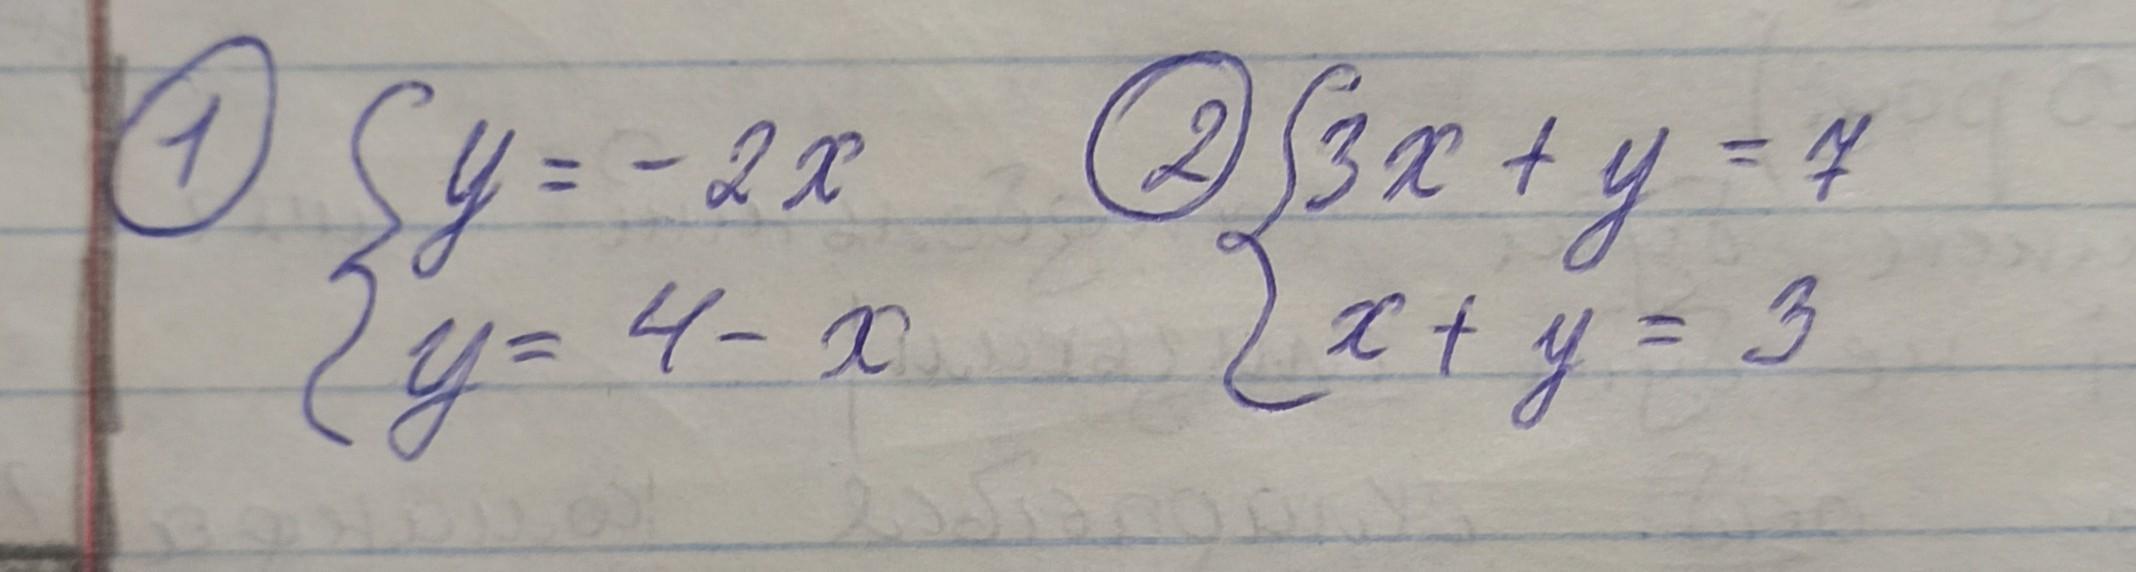 ① { y = - 2x
y = 4 - x
② { 3x + y = 7
x + y = 3